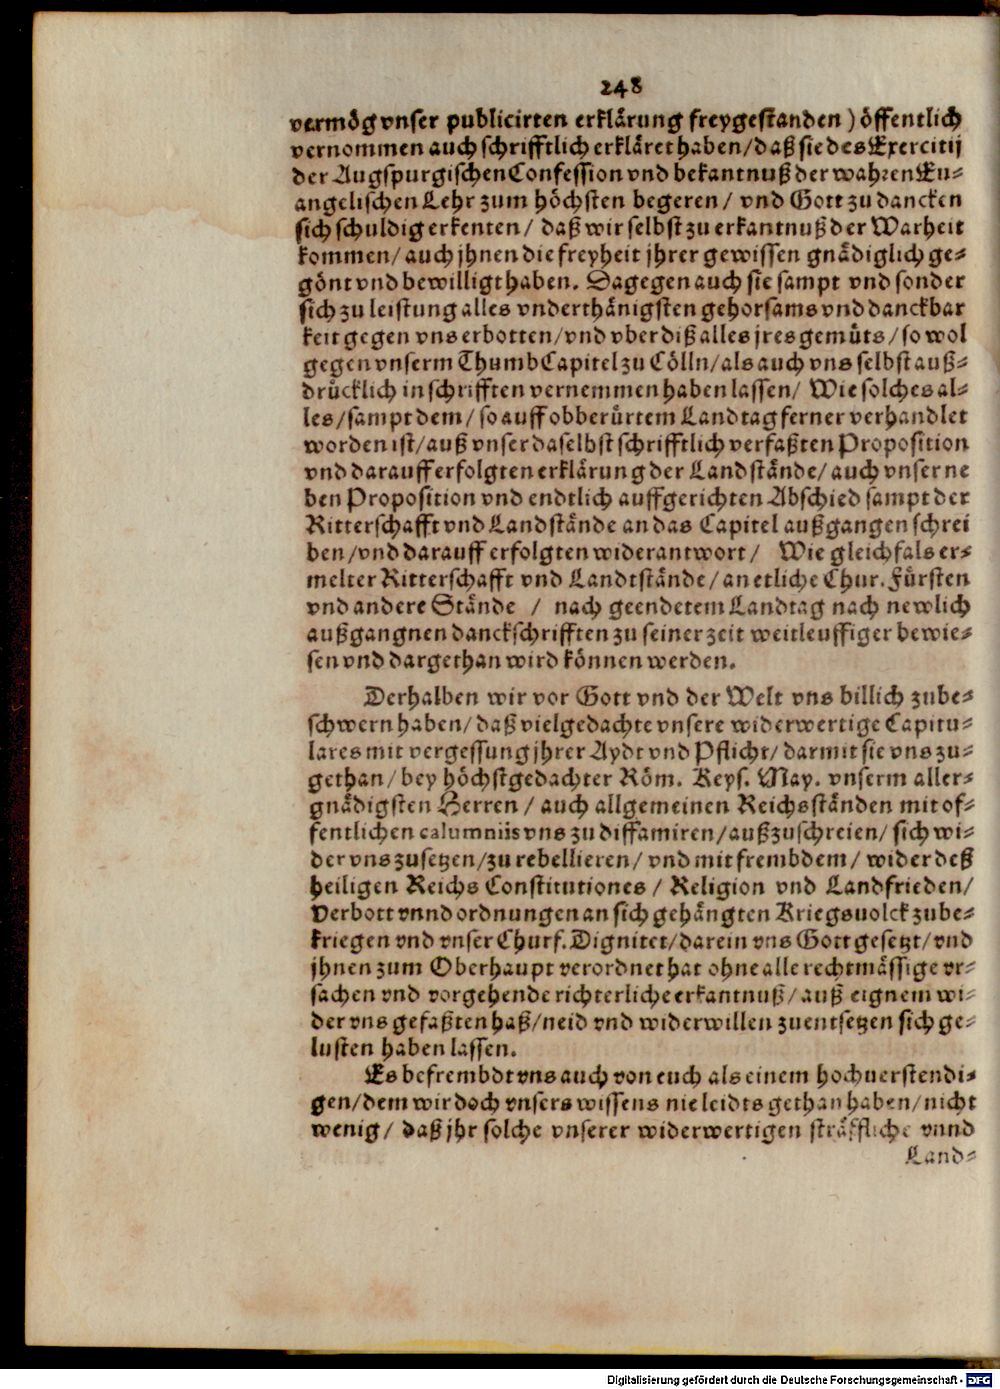 248
vermög vnser publicirten erklärung freygestanden) öffentlich
vernommen auch schrifftlich erkläret haben/ daß sie des Exercitij
der Augspurgischen Confession vnd bekantnuß der wahren Eu⸗
angelischen Lehr zum höchsten begeren/ vnd Gott zu dancken
sich schuldig erkenten/ daß wir selbst zu erkantnuß der Warheit
kommen/ auch jhnen die freyheit jhrer gewissen gnädiglich ge⸗
gönt vnd bewilligt haben. Dagegen auch sie sampt vnd sonder
sich zu leistung alles vnderthänigsten gehorsams vnd danckbar
keit gegen vns erbotten/ vnd vber diß alles jres gemüts/ so wol
gegen vnserm ThumbCapitel zu Cölln/ als auch vns selbst auß⸗
drücklich in schrifften vernemmen haben lassen/ Wie solches al⸗
les/ sampt dem/ so auff obberürtem Landtag ferner verhandlet
worden ist/ auß vnser daselbst schrifftlich verfaßten Proposition
vnd darauff erfolgten erklärung der Landstände/ auch vnser ne
ben Proposition vnd endtlich auffgerichten Abschied sampt der
Ritterschafft vnd Landstände an das Capitel außgangen schrei
ben/ vnd darauff erfolgten widerantwort/ Wie gleichfals er⸗
melter Ritterschafft vnd Landtstände/ an etliche Chur. Fürsten
vnd andere Stände / nach geendetem Landtag nach newlich
außgangnen danckschrifften zu seiner zeit weitleuffiger bewie⸗
sen vnd dargethan wird können werden.
Derhalben wir vor Gott vnd der Welt vns billich zube⸗
schwern haben/ daß vielgedachte vnsere widerwertige Capitu⸗
lares mit vergessung jhrer Aydt vnd Pflicht/ darmit sie vns zu⸗
gethan/ bey höchstgedachter Röm. Keys. May. vnserm aller⸗
gnädigsten Herren / auch allgemeinen Reichsständen mit of⸗
fentlichen calumniis vns zu diffamiren/ außzuschreien/ sich wi⸗
der vns zusetzen/ zu rebellieren/ vnd mit frembdem/ wider deß
heiligen Reichs Constitutiones / Religion vnd Landfrieden/
Verbott vnnd ordnungen an sich gehängten Kriegsuolck zube⸗
kriegen vnd vnser Churf. Dignitet/ darein vns Gott gesetzt/ vnd
jhnen zum Oberhaupt verordnet hat ohne alle rechtmässige vr⸗
sachen vnd vorgehende richterliche erkantnuß/ auß eignem wi⸗
der vns gefaßten haß/ neid vnd widerwillen zuentsetzen sich ge⸗
lusten haben lassen.
Es befrembdt vns auch von euch als einem hochuerstendi⸗
gen/ dem wir doch vnsers wissens nie leidts gethan haben/ nicht
wenig/ daß jhr solche vnserer widerwertigen sträffliche vnnd
Land⸗
Digitalisierung gefördert durch die Deutsche Forschungsgemeinschaft - DFG